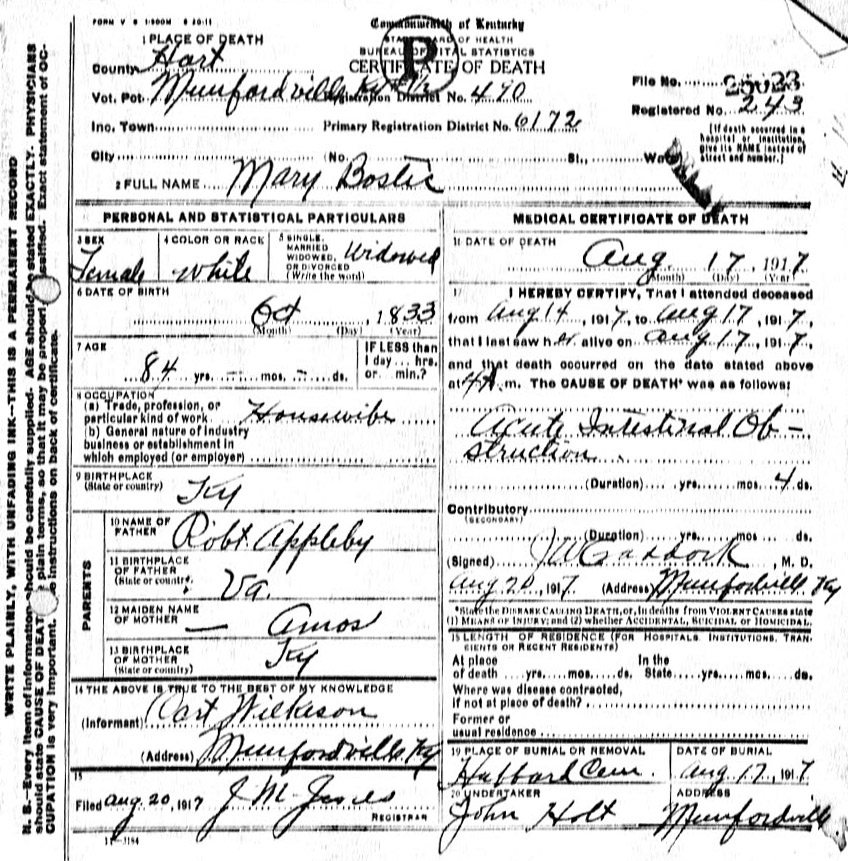 FORM V S 1-500M 8 20-11
Commonwealth of Kentucky
STATE BOARD OF HEALTH
BUREAU OF VITAL STATISTICS
CERTIFICATE OF DEATH
P
1 PLACE OF DEATH
County Hart
Vot. Pct. Munfordville Ky Registration District No. 470
Inc. Town Primary Registration District No. 6172
City (No. St., Ward
File No. 25023
Registered No. 243
[If death occurred in a
hospital or institution,
give its NAME instead of
street and number.]
2 FULL NAME Mary Bostic
PERSONAL AND STATISTICAL PARTICULARS
3 SEX
Female
4 COLOR OR RACE
White
5 SINGLE,
MARRIED
WIDOWED,
OR DIVORCED
(Write the word)
Widowed
6 DATE OF BIRTH
Oct 1833
(Month) (Day) (Year)
7 AGE
84 yrs. — mos. — ds.
IF LESS than
1 day... hrs.
or... min.?
8 OCCUPATION
(a) Trade, profession, or
particular kind of work Housewife
(b) General nature of industry
business or establishment in
which employed (or employer)
9 BIRTHPLACE
(State or country)
Ky
PARENTS
10 NAME OF
FATHER
Robt. Appleby
11 BIRTHPLACE
OF FATHER
(State or country)
Va.
12 MAIDEN NAME
OF MOTHER
— Amos
13 BIRTHPLACE
OF MOTHER
(State or country)
Ky
14 THE ABOVE IS TRUE TO THE BEST OF MY KNOWLEDGE
(Informant) Cart Wilkeson
(Address) Munfordville Ky
15
Filed Aug 20, 1917 J M Jones
REGISTRAR
11-3184
MEDICAL CERTIFICATE OF DEATH
16 DATE OF DEATH
Aug 17, 1917
(Month) (Day) (Year)
17 I HEREBY CERTIFY, That I attended deceased
from Aug 14, 1917, to Aug 17, 1917,
that I last saw her alive on Aug 17, 1917,
and that death occurred on the date stated above
at 4 A m. The CAUSE OF DEATH* was as follows:
Acute Intestinal Ob-
struction
(Duration) yrs. mos. 4 ds.
Contributory
(SECONDARY)
(Duration) yrs. mos. ds.
(Signed) J W Craddock, M. D.
Aug 20, 1917 (Address) Munfordville Ky
*State the DISEASE CAUSING DEATH, or, in deaths from VIOLENT CAUSES state
(1) MEANS OF INJURY; and (2) whether ACCIDENTAL, SUICIDAL or HOMICIDAL.
18 LENGTH OF RESIDENCE (FOR HOSPITALS, INSTITUTIONS, TRAN-
SIENTS OR RECENT RESIDENTS)
At place In the
of death yrs. mos. ds. State yrs. mos. ds.
Where was disease contracted,
if not at place of death?
Former or
usual residence
19 PLACE OF BURIAL OR REMOVAL
Hubbard Cem.
DATE OF BURIAL
Aug 17, 1917
20 UNDERTAKER
John Holt
ADDRESS
Munfordville
WRITE PLAINLY, WITH UNFADING INK—THIS IS A PERMANENT RECORD
N. B.—Every item of information should be carefully supplied. AGE should be stated EXACTLY. PHYSICIANS
should state CAUSE OF DEATH in plain terms, so that it may be properly classified. Exact statement of OC-
CUPATION is very important. See instructions on back of certificate.